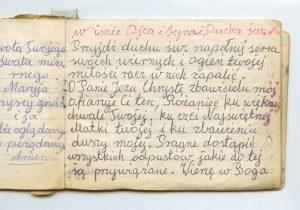 wota Twojego
świata mizer
nego
Maryja
czysty gniaz
i ja
bie oglądamy
porządamy
Amen.
w imię Ojca i Syna i Ducha św.
Przyjdź duchu św. napełnij serca
swoich wiernych i ogień twojej
miłości racz w nich zapalić.
O Panie Jezu Chryste zbawicielu mój
ofiaruję Ci ten, Rożaniec ku większej
chwale Twojej, ku czci Najświętszej
Matki twojej i ku zbawieniu
duszy mojej. Pragnę dostąpić
wszystkich odpustów, jakie do tej
są przywiązane. Wierzę w Boga